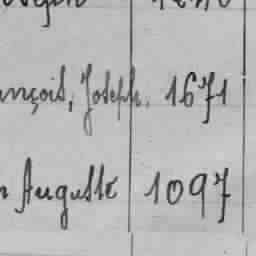 nçois, Joseph. 1671
Auguste 1097